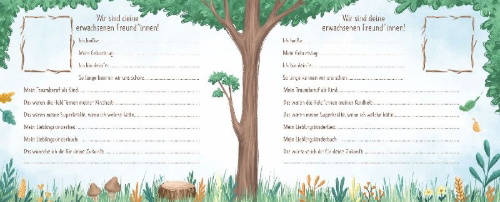 Wir sind deine
erwachsenen Freund*innen!
Ich heiße:
Mein Geburtstag:
Ich bin dein*e:
So lange kennen wir uns schon:
Mein Traumberuf als Kind:
Das waren die Held*innen meiner Kindheit:
Das wären meine Superkräfte, wenn ich welche hätte:
Mein Lieblingskinderlied:
Mein Lieblingskinderbuch:
Das wünsche ich dir für deine Zukunft:
Wir sind deine
erwachsenen Freund*innen!
Ich heiße:
Mein Geburtstag:
Ich bin dein*e:
So lange kennen wir uns schon:
Mein Traumberuf als Kind:
Das waren die Held*innen meiner Kindheit:
Das wären meine Superkräfte, wenn ich welche hätte:
Mein Lieblingskinderlied:
Mein Lieblingskinderbuch:
Das wünsche ich dir für deine Zukunft: